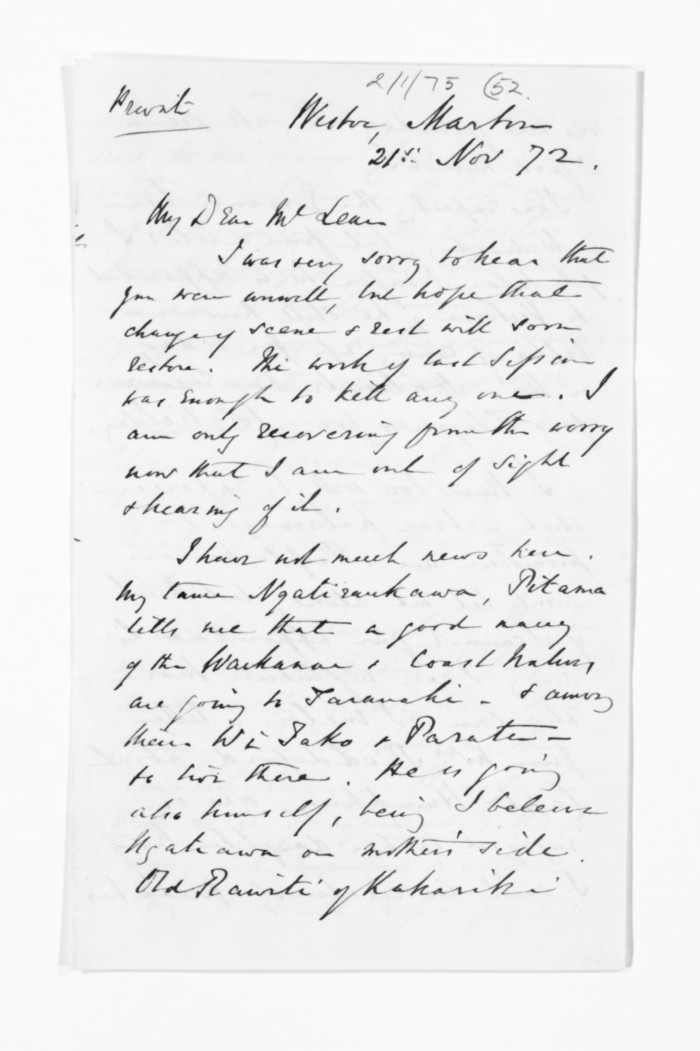 2/11/75 (52.
Private
Westoe, Marton
21st Nov 72.
My Dear McLean
I was very sorry to hear that
you were unwell, but hope that
change of scene & rest will soon
restore. The work of last Session
was enough to kill any one. I
am only recovering from the worry
now that I am out of sight
& hearing of it.
I have not much news here.
My tame Ngatiraukawa, Pitama
tells me that a good many
of the Waikanae & Coast Natives
are going to Taranaki - & among
them Wi Tako & Parate -
to live there. He is going
also himself, being I beleive
Ngatiawa on mother's side.
Old Rawiti of Kakariki